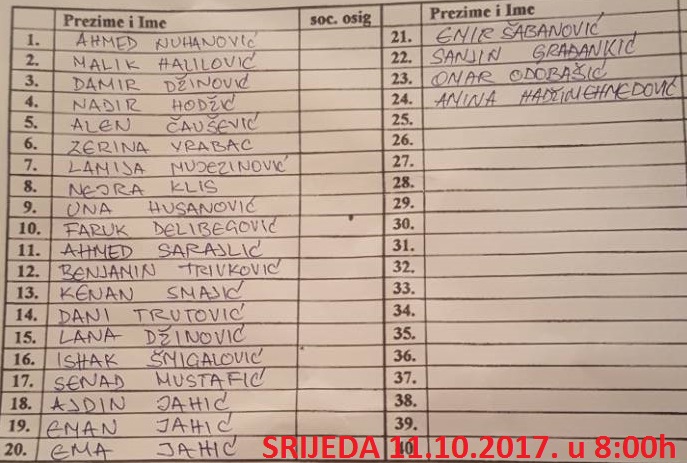 Prezime i Ime soc. osig
1. AHMED NUHANOVIĆ
2. MALIK HALILOVIĆ
3. DAMIR DŽINOVIĆ
4. NADIR HODŽIĆ
5. ALEN ČAUŠEVIĆ
6. ZERINA VRABAC
7. LAMIJA MUJEZINOVIĆ
8. NEJRA KLIS
9. UNA HUSANOVIĆ
10. FARUK DELIBEGOVIĆ
11. AHMED SARAJLIĆ
12. BENJAMIN TRIVKOVIĆ
13. KENAN SMAJIĆ
14. DANI TRUTOVIĆ
15. LANA DŽINOVIĆ
16. ISHAK ŠMIGALOVIĆ
17. SENAD MUSTAFIĆ
18. AJDIN JAHIĆ
19. EMAN JAHIĆ
20. EMA JAHIĆ
Prezime i Ime
21. EMIR ŠABANOVIĆ
22. SANJIN GRAĐANKIĆ
23. OMAR ODOBAŠIĆ
24. AMINA HADŽIMEHMEDOVIĆ
25.
26.
27.
28.
29.
30.
31.
32.
33.
34.
35.
36.
37.
38.
39.
40.
SRIJEDA 11.10.2017. u 8:00h